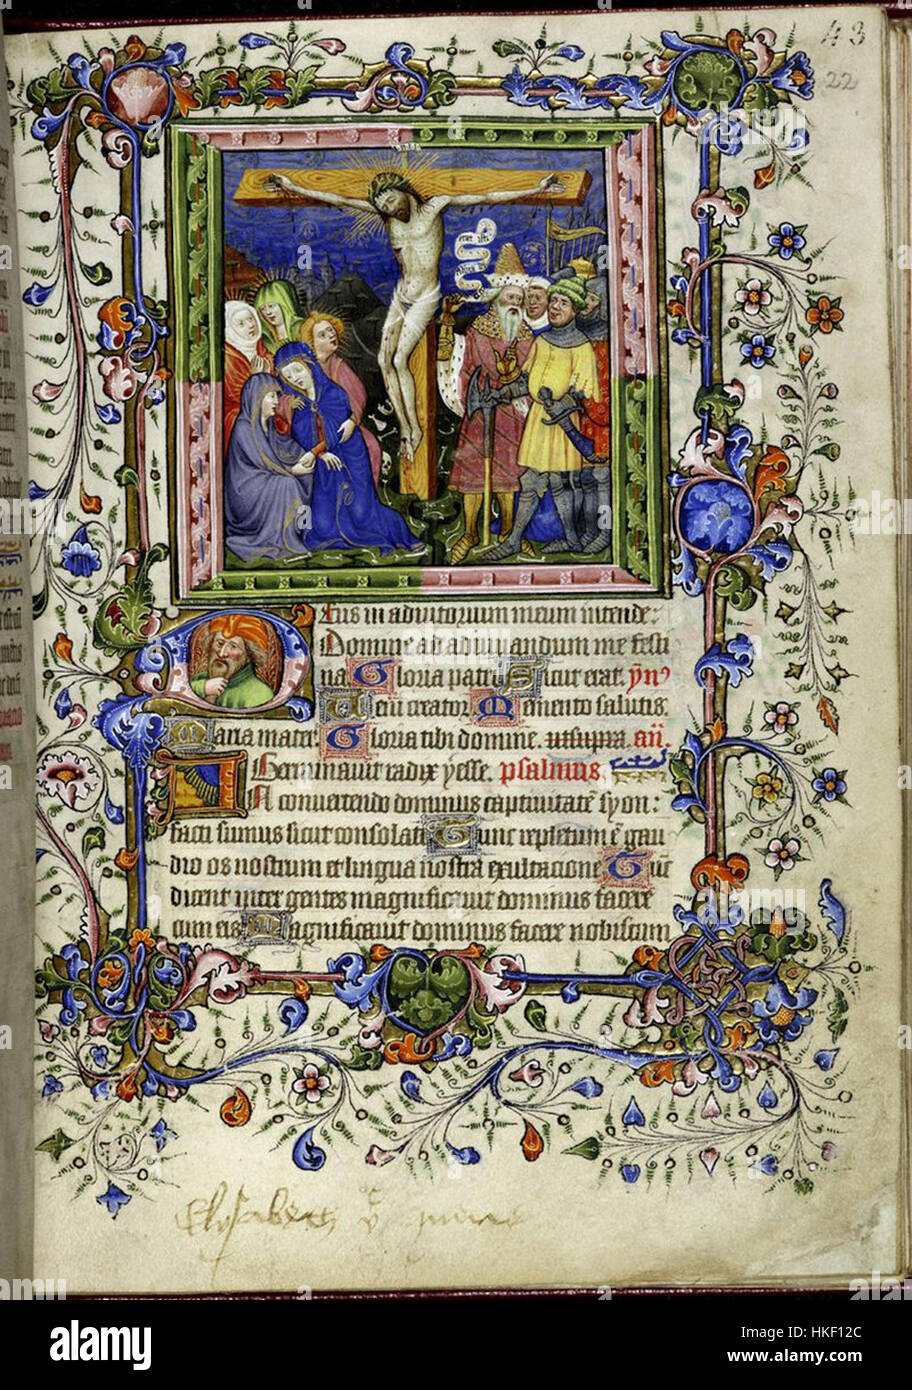 43
22
Deus in adiutorium meum intende:
Domine ad adiuuandum me festi
na Gloria patri Sicut erat. ymͥ
Ueni creator Memento salutis.
Maria mater Gloria tibi domine. ut supra. añ.
Germinauit radix yesse. psalmus.
IN conuertendo dominus captiuitatē syon:
facti sumus sicut consolati Tunc repletum ē gau
dio os nostrum et lingua nostra exultacione Tūc
dicent inter gentes magnificauit dominus facere
cum eis Magnificauit dominus facere nobiscum
Elysabeth
alamy
Image ID: HKF12C
www.alamy.com